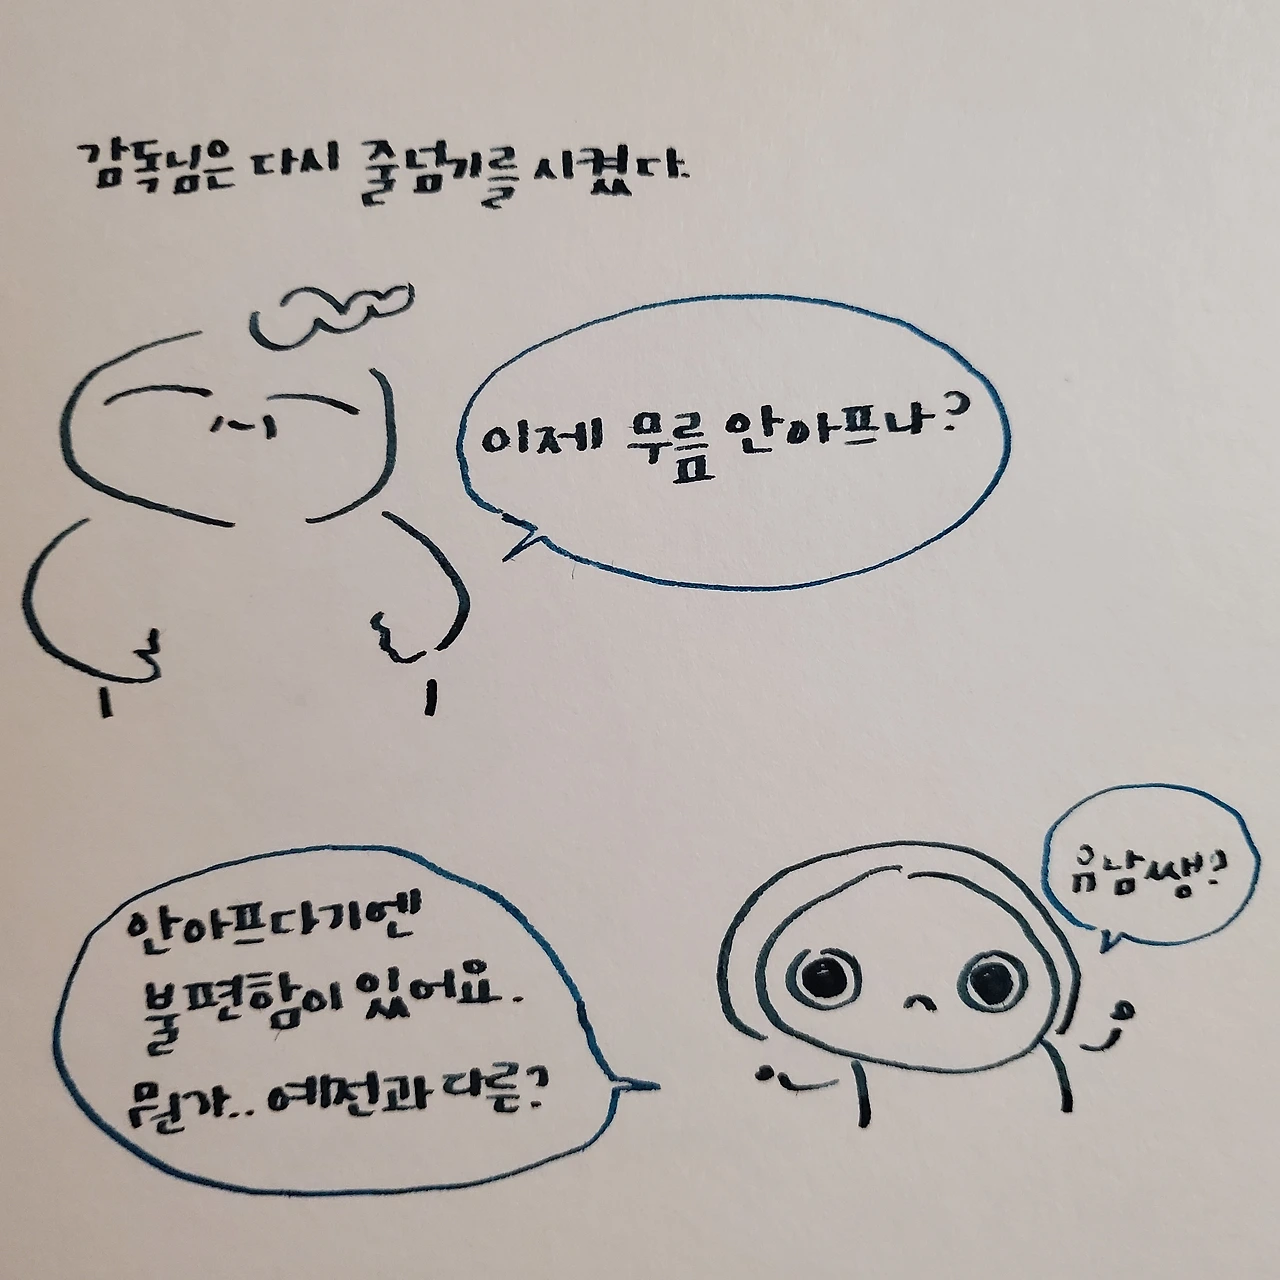 감독님은 다시 줄넘기를 시켰다.
이제 무릎 안아프나?
안아프다기엔
불편함이 있어요.
뭔가.. 예전과 다른?